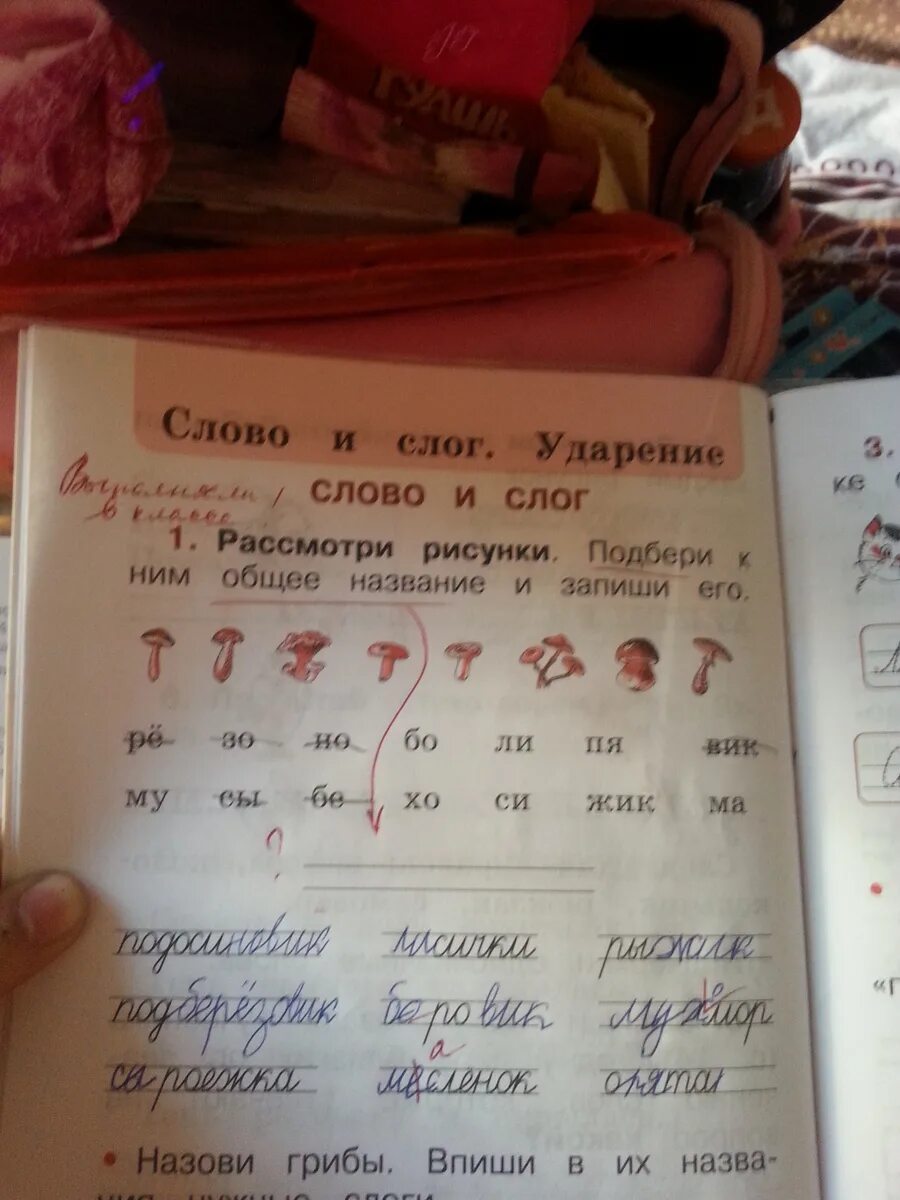 до
ГУАШЬ
Слово и слог. Ударение
Выполняли
в классе
СЛОВО И СЛОГ
1. Рассмотри рисунки. Подбери к
ним общее название и запиши его.
рё зо но бо ли пя вик
му сы бе хо си жик ма
?
подосиновик лисички рыжик
подберёзовик боровик мухомор
сыроежка масленок опята
• Назови грибы. Впиши в их назва-
ния нужные слоги.
3.
ке